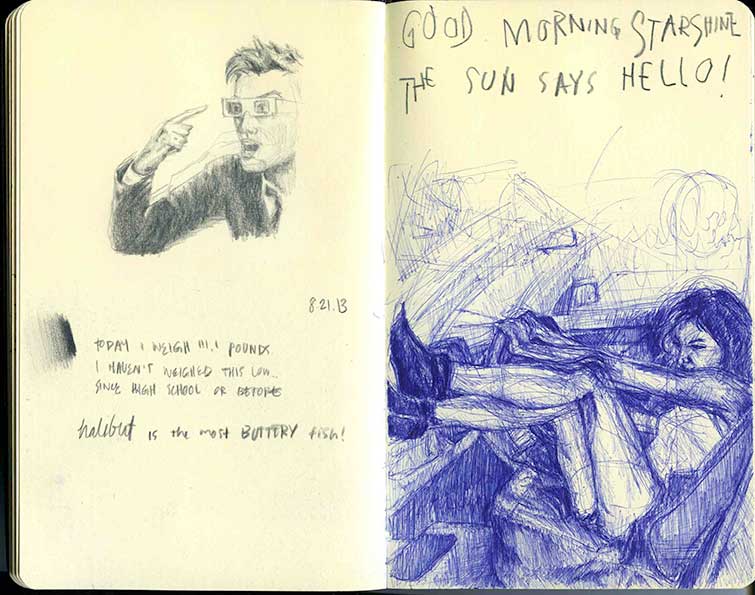 8.21.13
TODAY I WEIGH 111.1 POUNDS.
I HAVEN'T WEIGHED THIS LOW..
SINCE HIGH SCHOOL OR BEFORE
halibut is the most BUTTERY fish!
GOOD MORNING STARSHINE
THE SUN SAYS HELLO!